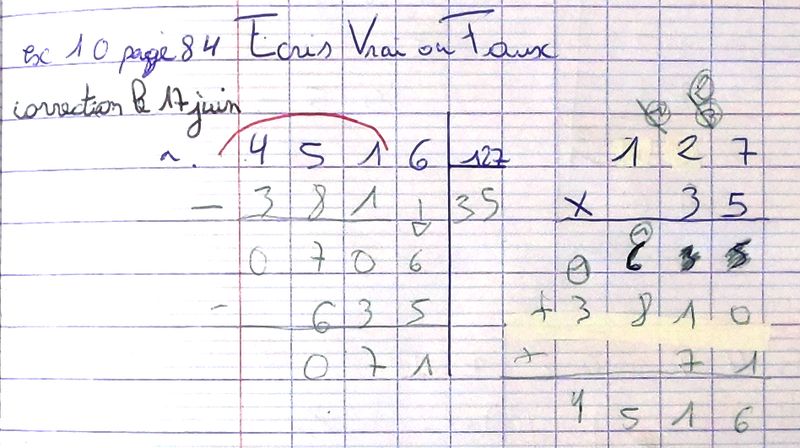 ex 10 page 84 Ecris Vrai ou Faux
correction le 17 juin
~. 4 5 1 6 127 1 2 7
- 3 8 1 35 x 3 5
0 7 0 6 6 3 5
- 6 3 5 + 3 8 1 0
0 7 1 + 7 1
4 5 1 6